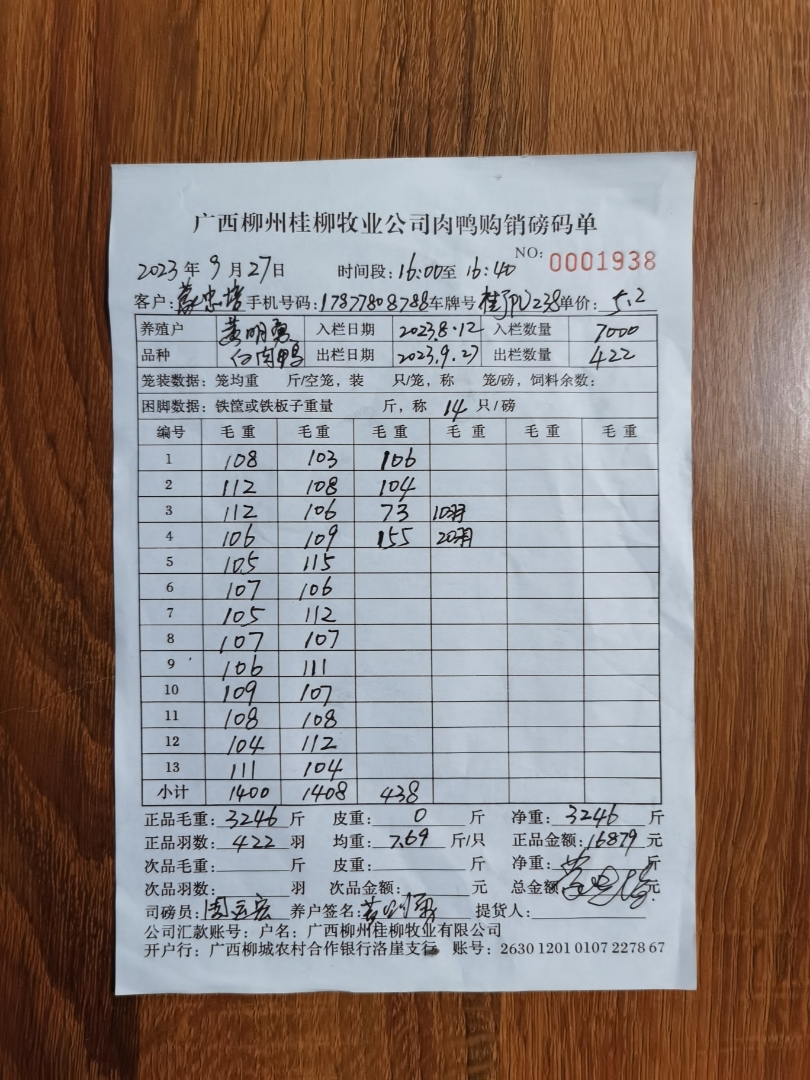 广西柳州桂柳牧业公司肉鸭购销磅码单
NO: 0001938
2023年9月27日 时间段:16:00至16:40
客户: 手机号码:17877808788 车牌号 238 单价:5.2
养殖户 黄明勇 入栏日期 2023.8.12 入栏数量 7000
品种 白肉鸭 出栏日期 2023.9.27 出栏数量 422
笼装数据:笼均重 斤/空笼,装 只/笼,称 笼/磅,饲料余数:
困脚数据:铁筐或铁板子重量 斤,称 14 只/磅
编号 毛重 毛重 毛重 毛重 毛重 毛重
1 108 103 106
2 112 108 104
3 112 106 73 10羽
4 106 109 155 20羽
5 105 115
6 107 106
7 105 112
8 107 107
9 106 111
10 109 107
11 108 108
12 104 112
13 111 104
小计 1400 1408 438
正品毛重:3246斤 皮重:0斤 净重:3246斤
正品羽数:422羽 均重:7.69斤/只 正品金额:16879元
次品毛重: 斤 皮重: 斤 净重: 斤
次品羽数: 羽 次品金额: 元 总金额 元
司磅员: 养户签名:黄明勇 提货人:
公司汇款账号:户名:广西柳州桂柳牧业有限公司
开户行:广西柳城农村合作银行洛崖支行 账号:2630 1201 0107 2278 67